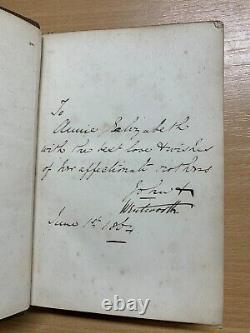 To
Annie Elizabeth
with the best love & wishes
of her affectionate brothers
John &
Wentworth
June 1st 1864